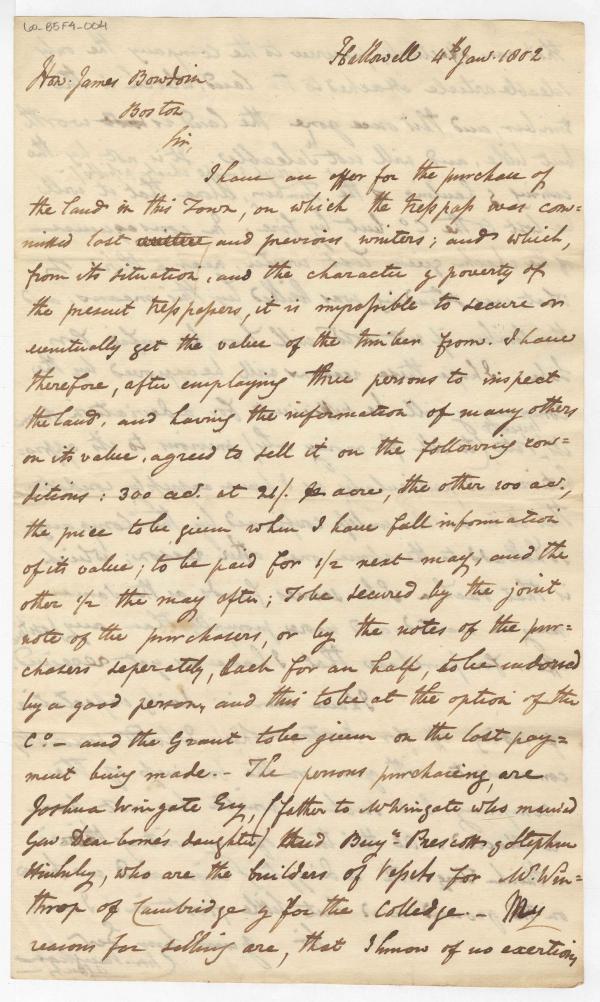 60-B5F4-004
Hallowell 4th Jan. 1802
Hon. James Bowdoin
Boston
Sir,
I have an offer for the purchase of
the land in this Town, on which the tresspass was com=
mitted last and previous winters; and which,
from its situation, and the character & poverty of
the present tresspassers, it is impossible to secure or
eventually get the value of the timber from. I have
therefore, after employing three persons to inspect
the land, and having the information of many others
on its value, agreed to sell it on the following con=
ditions: 300 ac. at 21/. acre, the other 100 ac.,
the price to be given when I have full information
of its value; to be paid for 1/2 next may, and the
other 1/2 the may after; To be secured by the joint
note of the purchasers, or by the notes of the pur=
chasers seperately, Each for an half, to be indorsed
by a good person, and this to be at the option of the
Co. - and the Grant to be given on the last pay=
ment being made. - The persons purchaseing are
Joshua Wingate Esq, (father to Mr Wingate who married
Gen Dearborne's daughter) Benjn. Prescott & Stephen
Hinkley, who are the builders of Vessels for Mr. Win=
throp of Cambridge & for the Colledge. - My
reasons for selling are, that I know of no exertion,